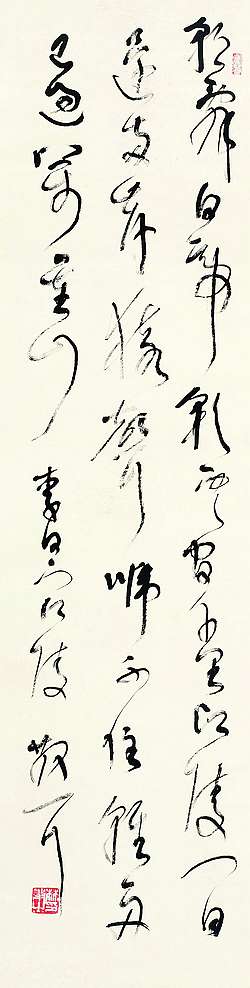 朝辭白帝彩雲間千里江陵一日
還兩岸猿聲啼不住輕舟
已過萬重山 李白下江陵 散耳